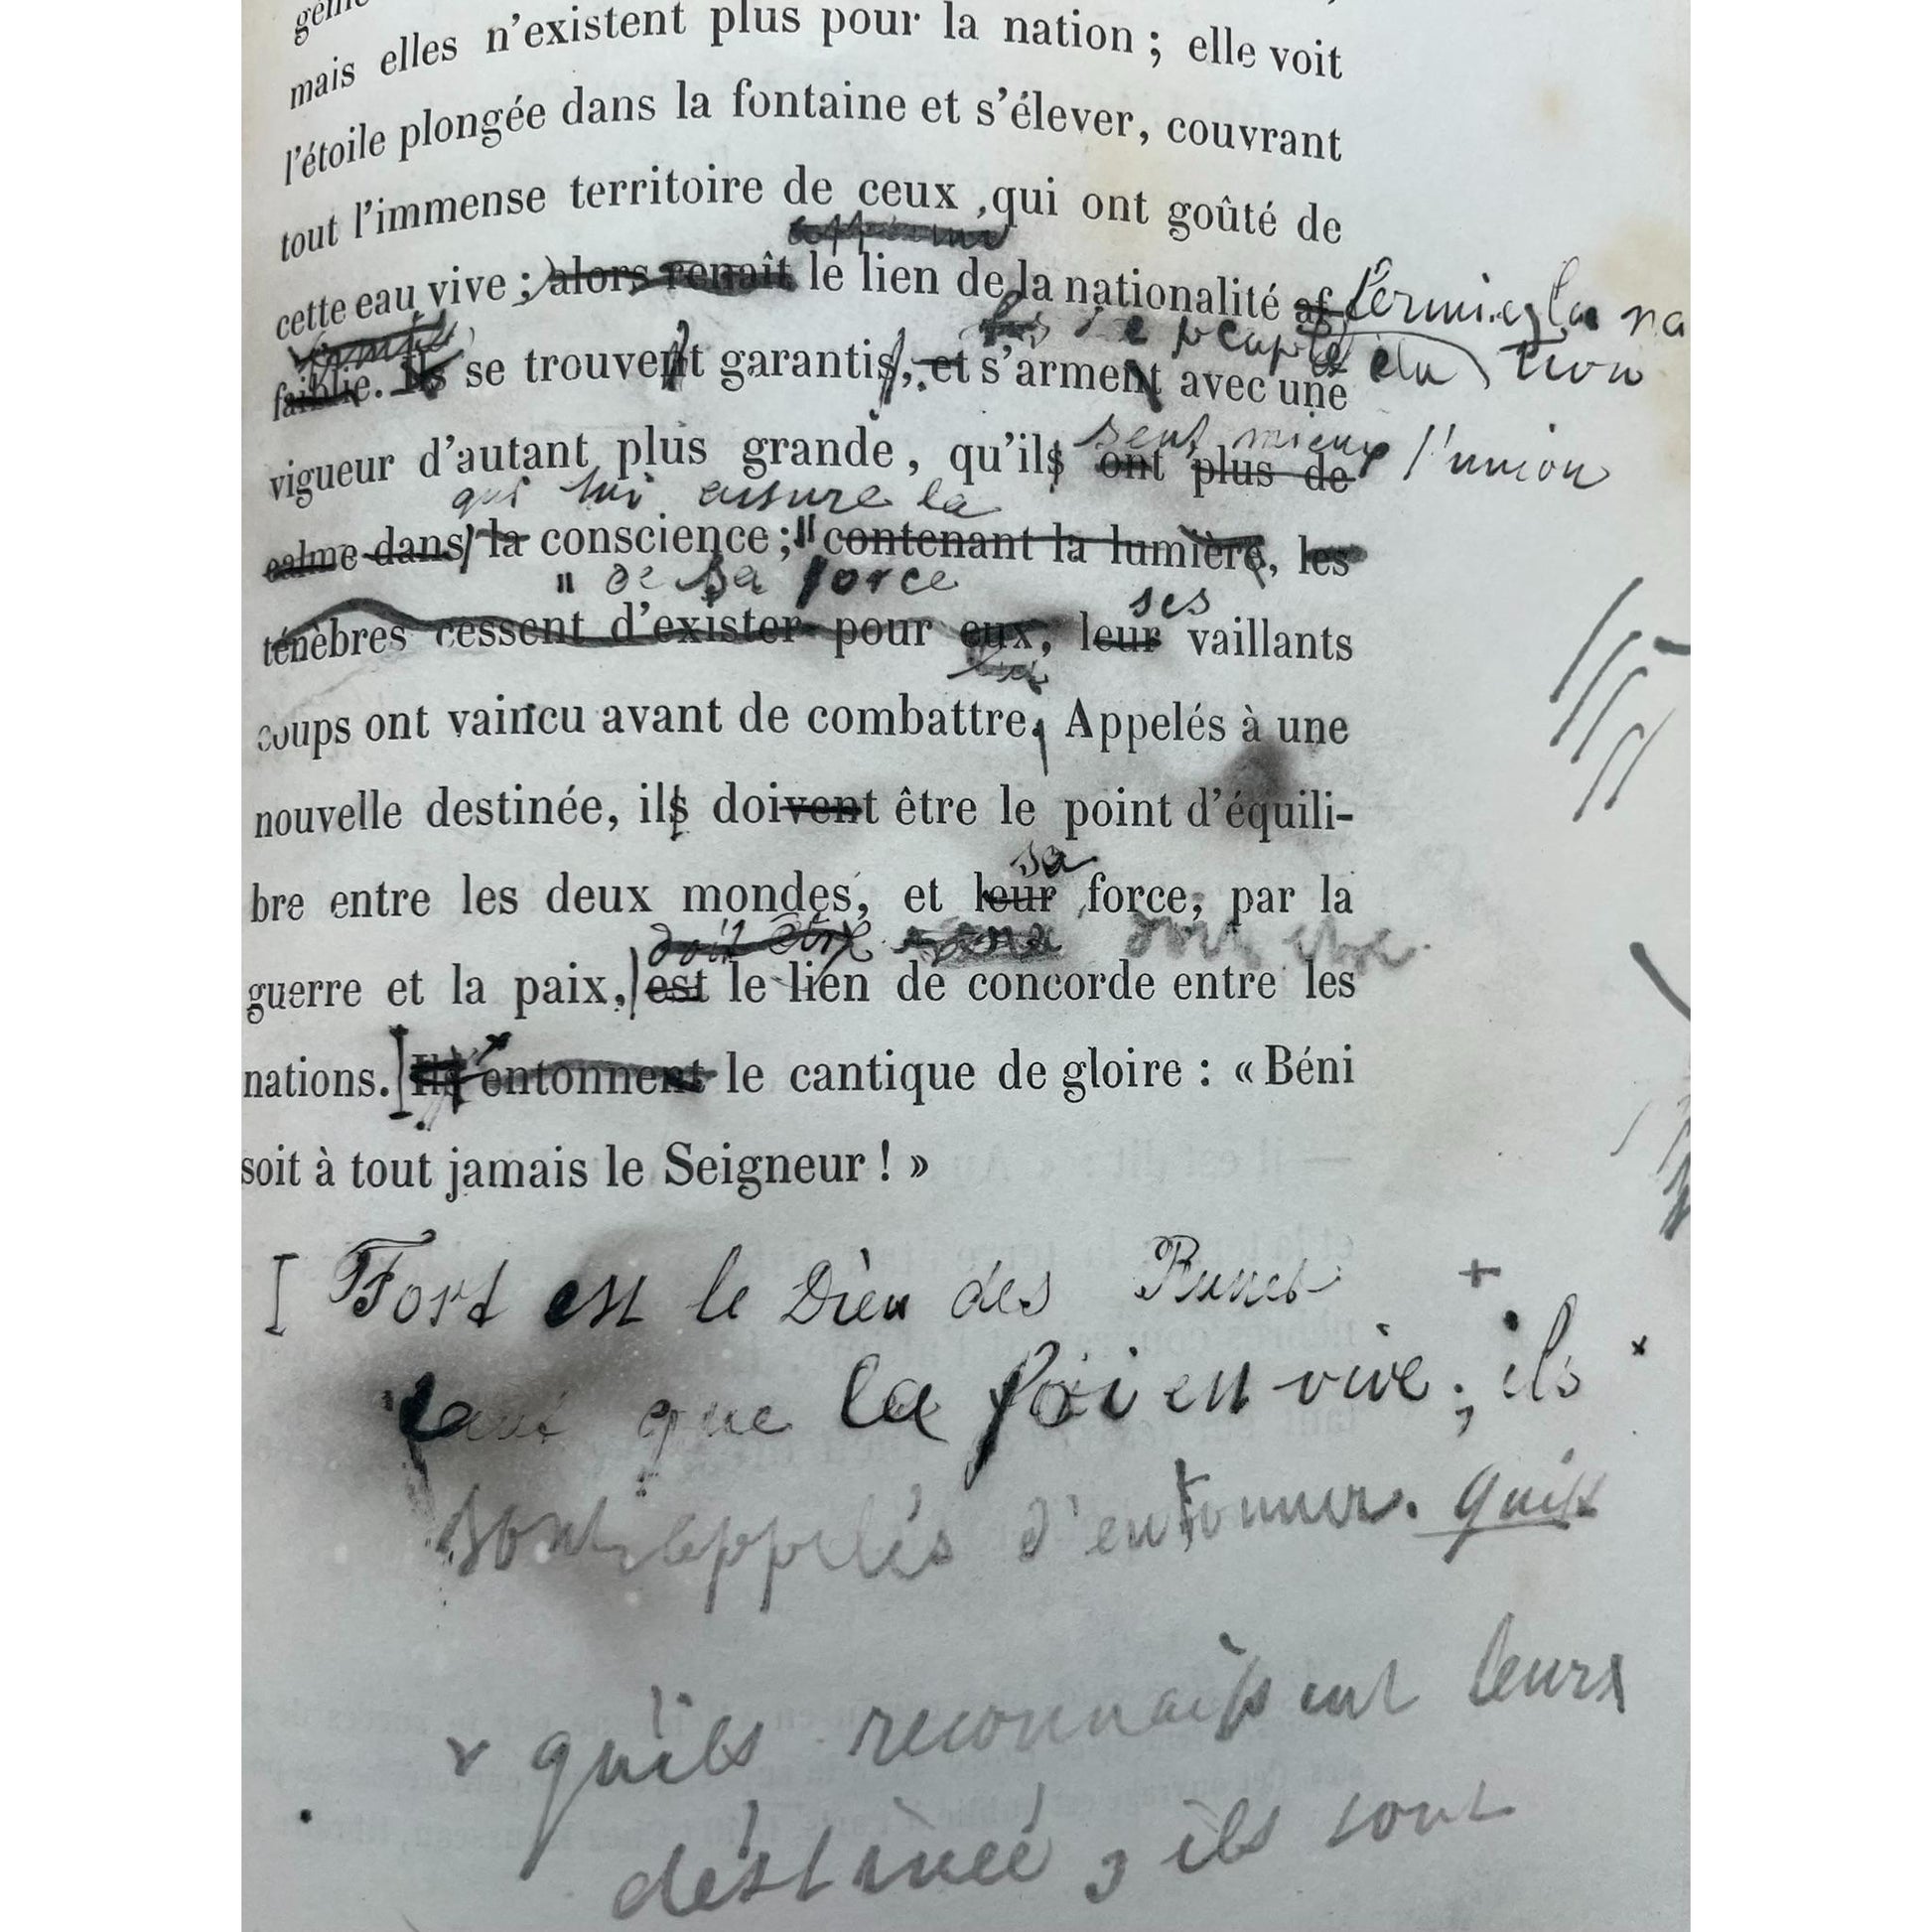 mais elles n'existent plus pour la nation ; elle voit
l'étoile plongée dans la fontaine et s'élever, couvrant
tout l'immense territoire de ceux qui ont goûté de
cette eau vive ; alors renaît le lien de la nationalité af
la na
faiblie. Ils se trouvent garantis, et s'arment avec une
le peuple élu
tion
vigueur d'autant plus grande, qu'ils ont plus de
sent mieux l'union
qui lui assure la
calme dans la conscience ; contenant la lumière, les
" de sa force
ses
ténèbres cessent d'exister pour eux, leur vaillants
coups ont vaincu avant de combattre. Appelés à une
nouvelle destinée, ils doivent être le point d'équili-
sa
bre entre les deux mondes, et leur force, par la
doit être doit être
guerre et la paix, est le lien de concorde entre les
nations. Ils entonnent le cantique de gloire : « Béni
soit à tout jamais le Seigneur ! »
Fort est le Dieu des Russes +
tant que la foi en vive ; ils
sont appelés d'entonner.
qu'ils reconnaissent leurs
destinée, ils sont